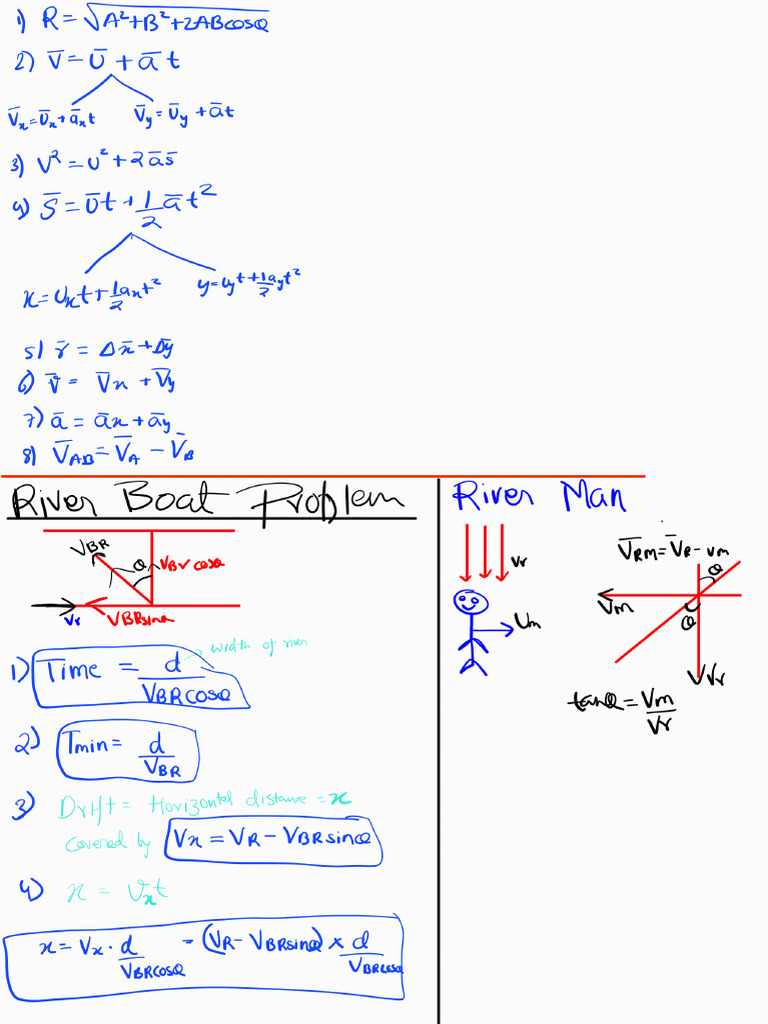 1) R = √A²+B²+2ABcosθ
2) V̄ = Ū + āt
V̄x = Ūx + āxt V̄y = Ūy + āt
3) V² = U² + 2ās̄
4) S̄ = Ūt + 1/2 āt²
x = Uxt + 1/2 axt² y = Uyt + 1/2 ayt²
5) r̄ = Δx̄ + Δȳ
6) v̄ = V̄x + V̄y
7) ā = āx + āy
8) V̄AB = V̄A − V̄B
River Boat Problem
VBR θ VBr cosθ
Vr VBRsinθ
1) Time = d/VBRcosθ → width of river
2) Tmin = d/VBR
3) Drift = Horizontal distance = x
covered by Vx = VR − VBRsinθ
4) x = Vxt
x = Vx · d/VBRcosθ = (VR − VBRsinθ) × d/VBRcosθ
River Man
Vr
Vm
V̄Rm = V̄R − vm
θ
Vm
θ
Vr
tanθ = Vm/Vr